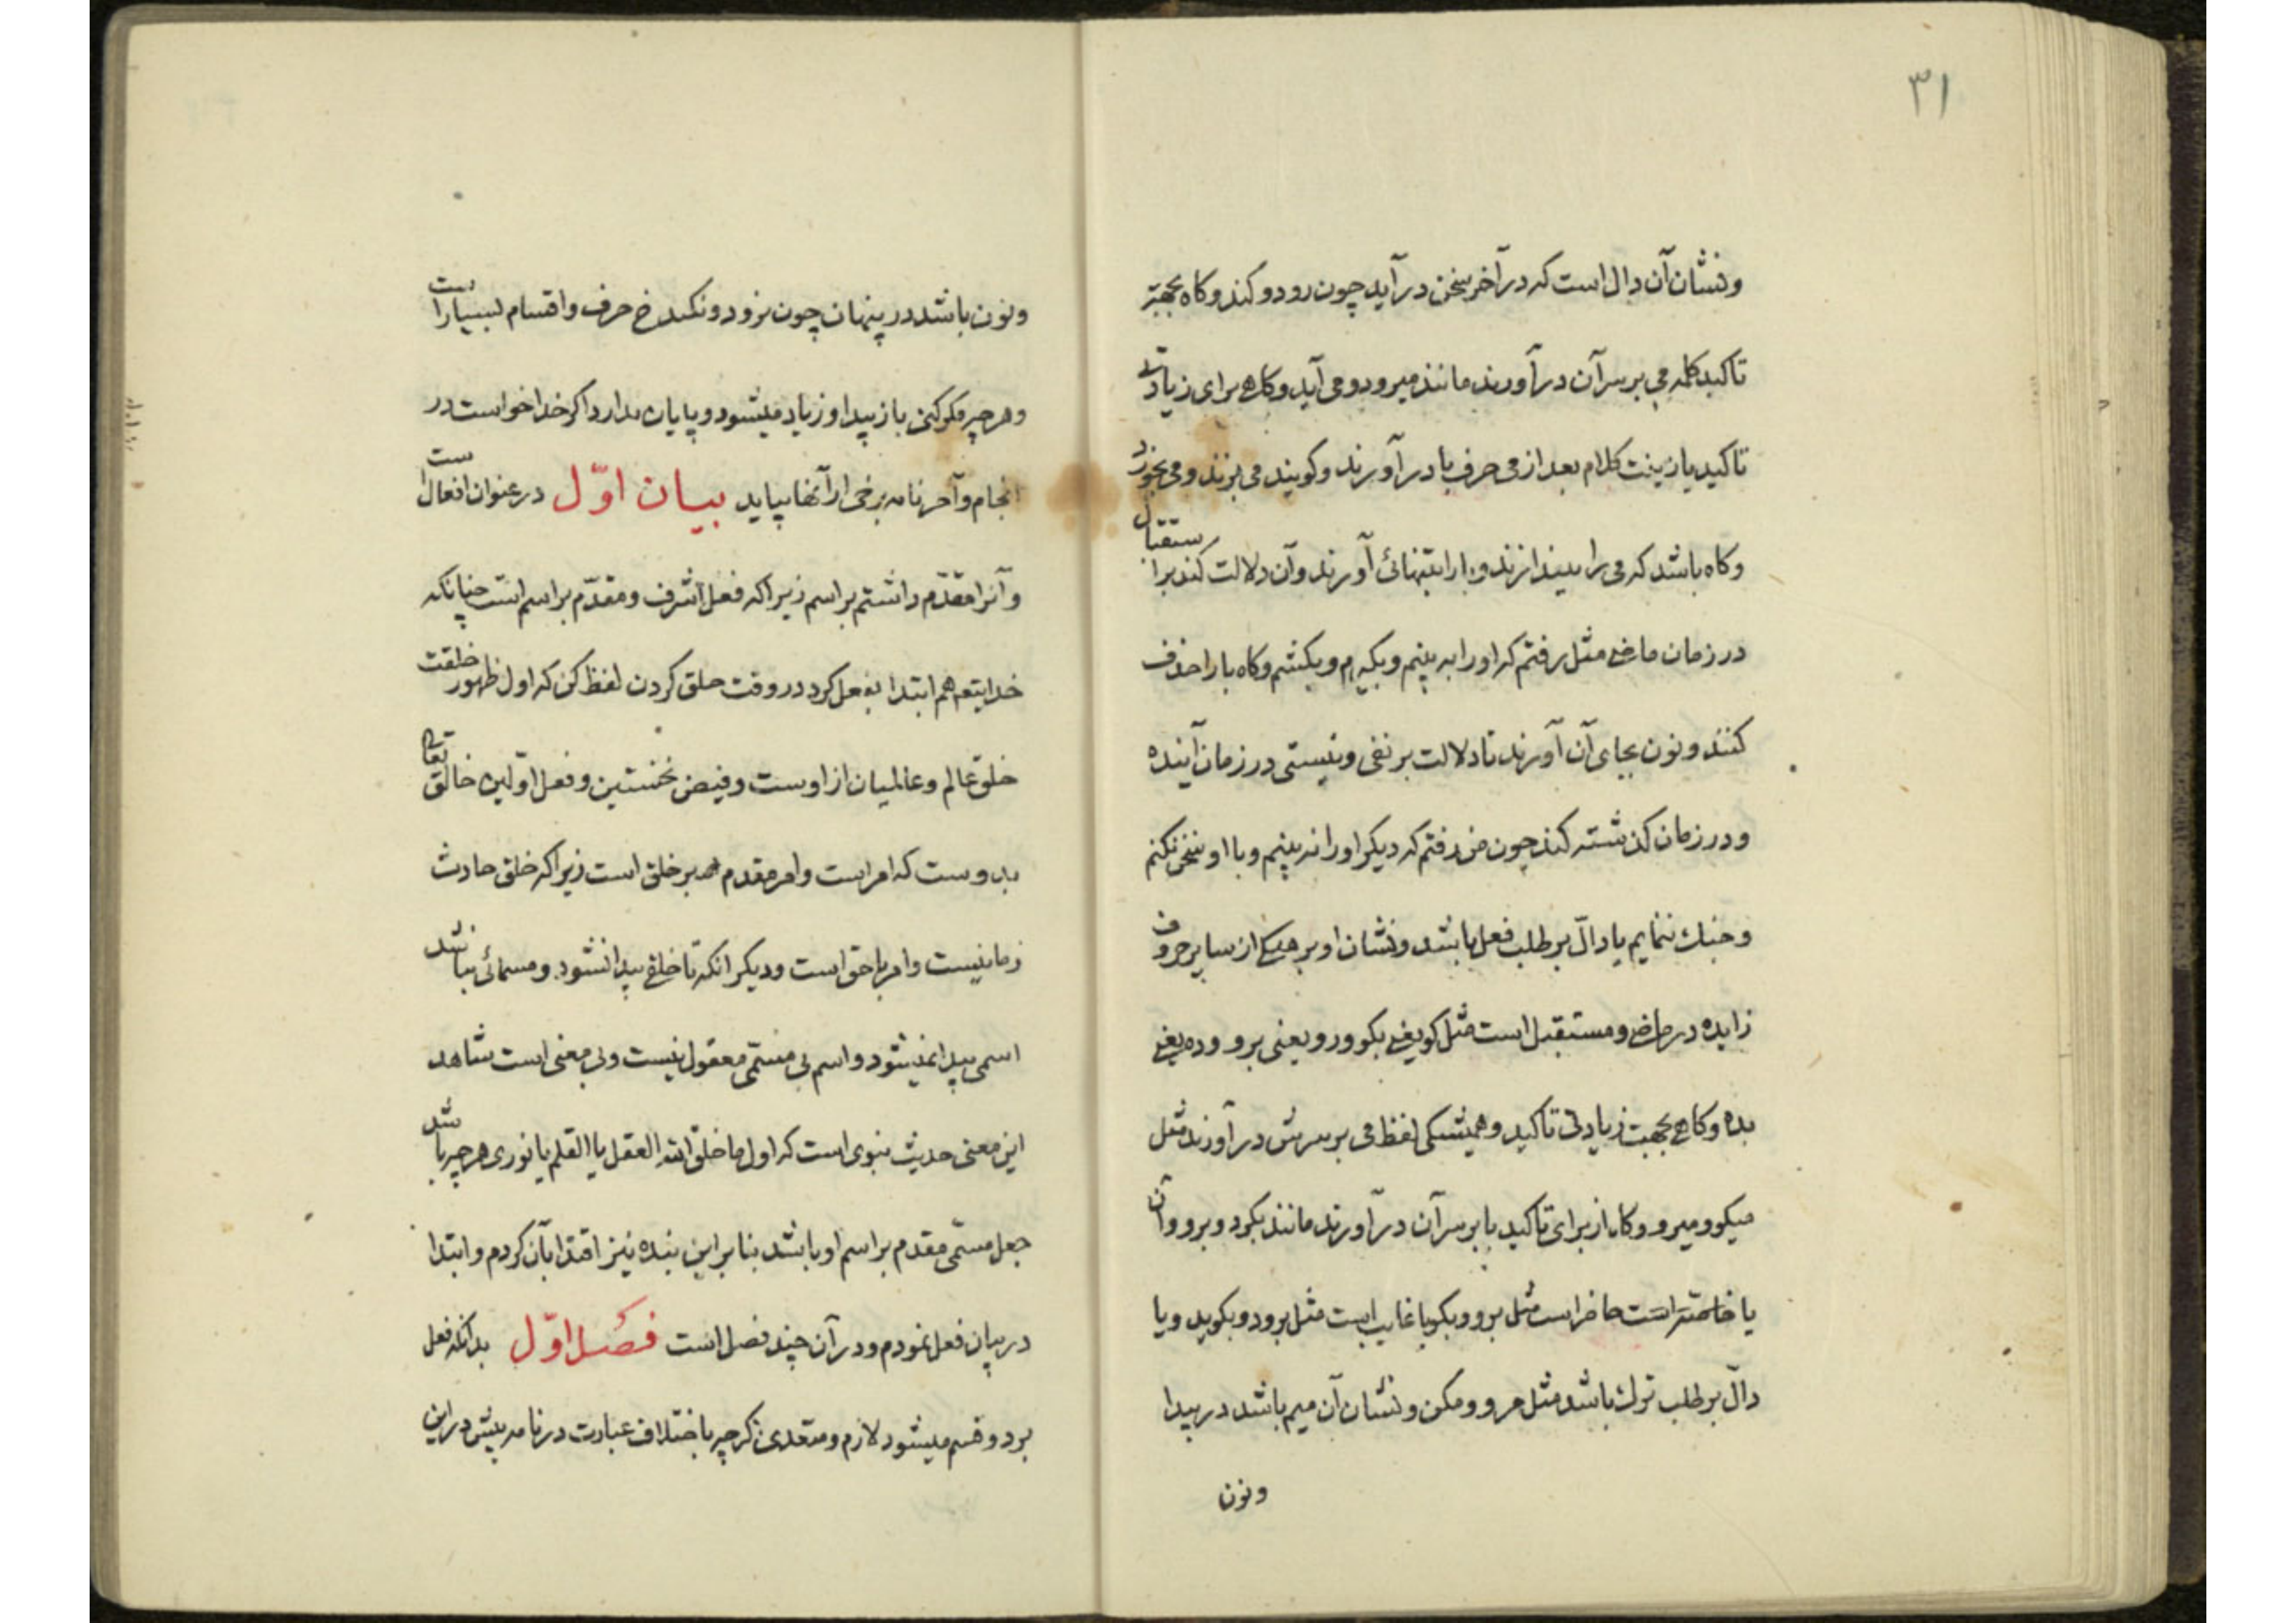 ۳۱
ونشان آن دال است که در آخر سخن در آید چون رود و کند و کاه بجهة
تاکید کلمه می بر سر آن در آورند مانند میرود و می آید و کاهی برای زیادتی
تاکید یا زینت کلام بعد از می حرف با در آورند و کویند می بزند و می بخورد
و کاه باشد که می را بیندازند و با را بتنهائی آورند و آن دلالت کند بر استقبال
در زمان ماضی مثل رفتم که او را به بینم و بکیرم و بکشم و کاه با را حذف
کنند و نون بجای آن آورند تا دلالت بر نفی و نیستی در زمان آینده
و در زمان کذشته کند چون من رفتم که دیکر او را نه بینم و با او سخن نکنم
و جنك ننمایم یا دالّ بر طلب فعل باشد و نشان او برهنکی از سایر حروف
زایده در ماضی و مستقبل است مثل کو یعنی بکو و رو یعنی برو و ده یعنی
بده و کاهی بجهت زیادتی تاکید و همیشکی لفظ می بر سرش در آورند مثل
میکو و میرو و کاه از برای تاکید با بر سر آن در آورند مانند بکو و برو و آن
یا حاضر است مثل برو و بکو یا غایب است مثل برود و بکوید و یا
دالّ بر طلب ترك باشد مثل مرو و مکن و نشان آن میم باشد در پیدا
و نون
و نون باشد در پنهان چون نرود و نکند حرف و اقسام بسیار است
و هر چه فکر کنی باز پیدا و زیاد میشود و پایان ندارد اکر خدا خواست در
انجام و آخر نامه برخی از آنها بیاید بیان اوّل در عنوان افعال است
و آنرا مقدّم داشتم بر اسم زیرا که فعل اشرف و مقدّم بر اسم است چنانکه
خدایتعه هم ابتدا بفعل کرد در وقت خلق کردن لفظ کن که اول ظهور خلقت
خلق عالم و عالمیان از اوست و فیض نخستین و فعل اوّلین خالق تعالی
بدوست که امر است و امر مقدم بر خلق است زیرا که خلق حادث
زمانیست و امر با حق است و دیکر انکه تا خلق پیدا نشود و مسمائی نباشد
اسمی پیدا نمیشود و اسم بی مسمّی معقول نیست و بی معنی است شاهد
این معنی حدیث نبوی است که اول ما خلق الله العقل یا القلم یا نوری هر چه باشد
جعل مسمّی مقدم بر اسم او باشد بنا بر این بنده نیز اقتدا بآن کردم و ابتدا
در بیان فعل نمودم و در آن چند فصل است فصل اوّل بدانکه فعل
بر دو قسم میشود لازم و متعدی کرچه باختلاف عبارت در نامه پیش در این